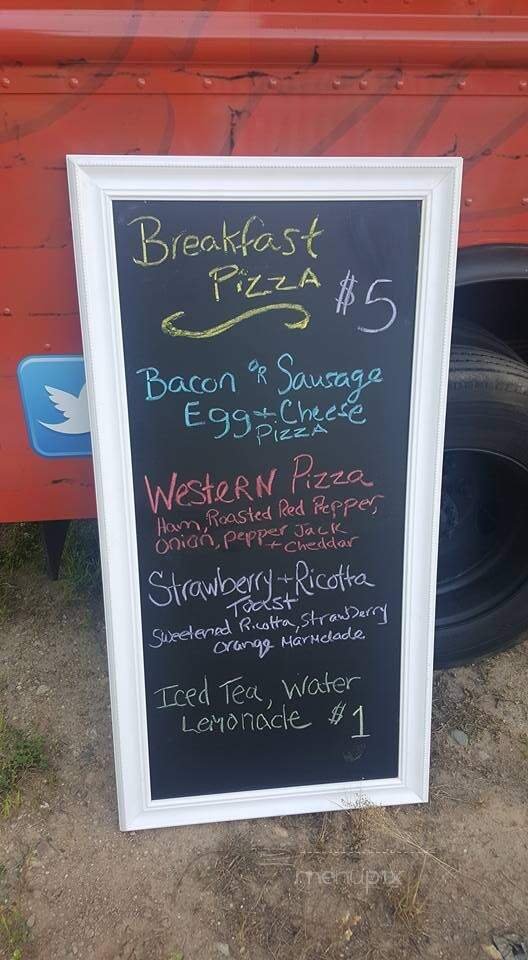 Breakfast
Pizza
$5
Bacon OR Sausage
Egg + Cheese
Pizza
Western Pizza
Ham, Roasted Red Pepper,
Onion, pepper Jack
+ Cheddar
Strawberry + Ricotta
Toast
Sweetened Ricotta, Strawberry
Orange Marmelade
Iced Tea, Water
Lemonade $1
menupix